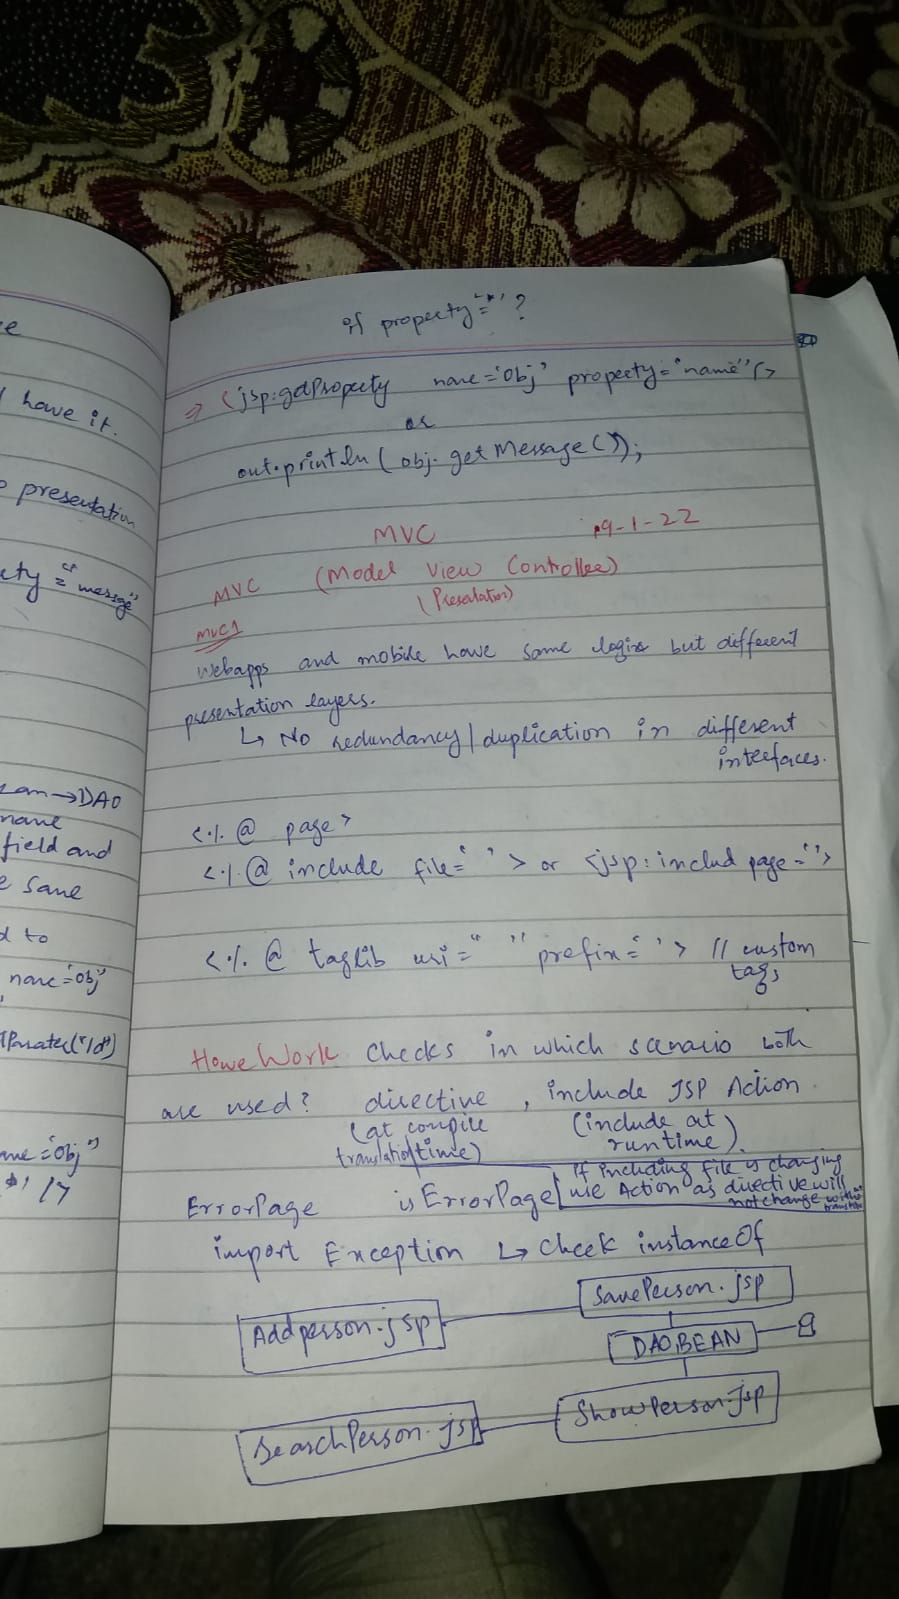 e
have it.
presentation
ety = "message"
DAO
name
field and
e same
d to
name='obj'
ame='obj"
if property='*'?
⇒ <jsp:getProperty name='Obj' property="name"/>
or
out.println(obj.getMessage());
MVC 19-1-22
MVC (Model View Controller)
(Presentation)
MVC1
Webapps and mobile have same logics but different
presentation layers.
↳ No redundancy/duplication in different
interfaces.
<%@ page>
<%@ include file=' '> or <jsp:includ page=''>
<%@ taglib uri=" " prefix=' '> // custom
tags
HomeWork Checks in which scenario both
are used? directive, include JSP Action.
(at compile (include at
translation/time) runtime)
If including file is changing
ErrorPage isErrorPage use Action as directive will
not change
import Exception ↳ Check instanceOf
SavePerson.jsp
Addperson.jsp
DAO,BEAN
ShowPerson.jsp
SearchPerson.jsp